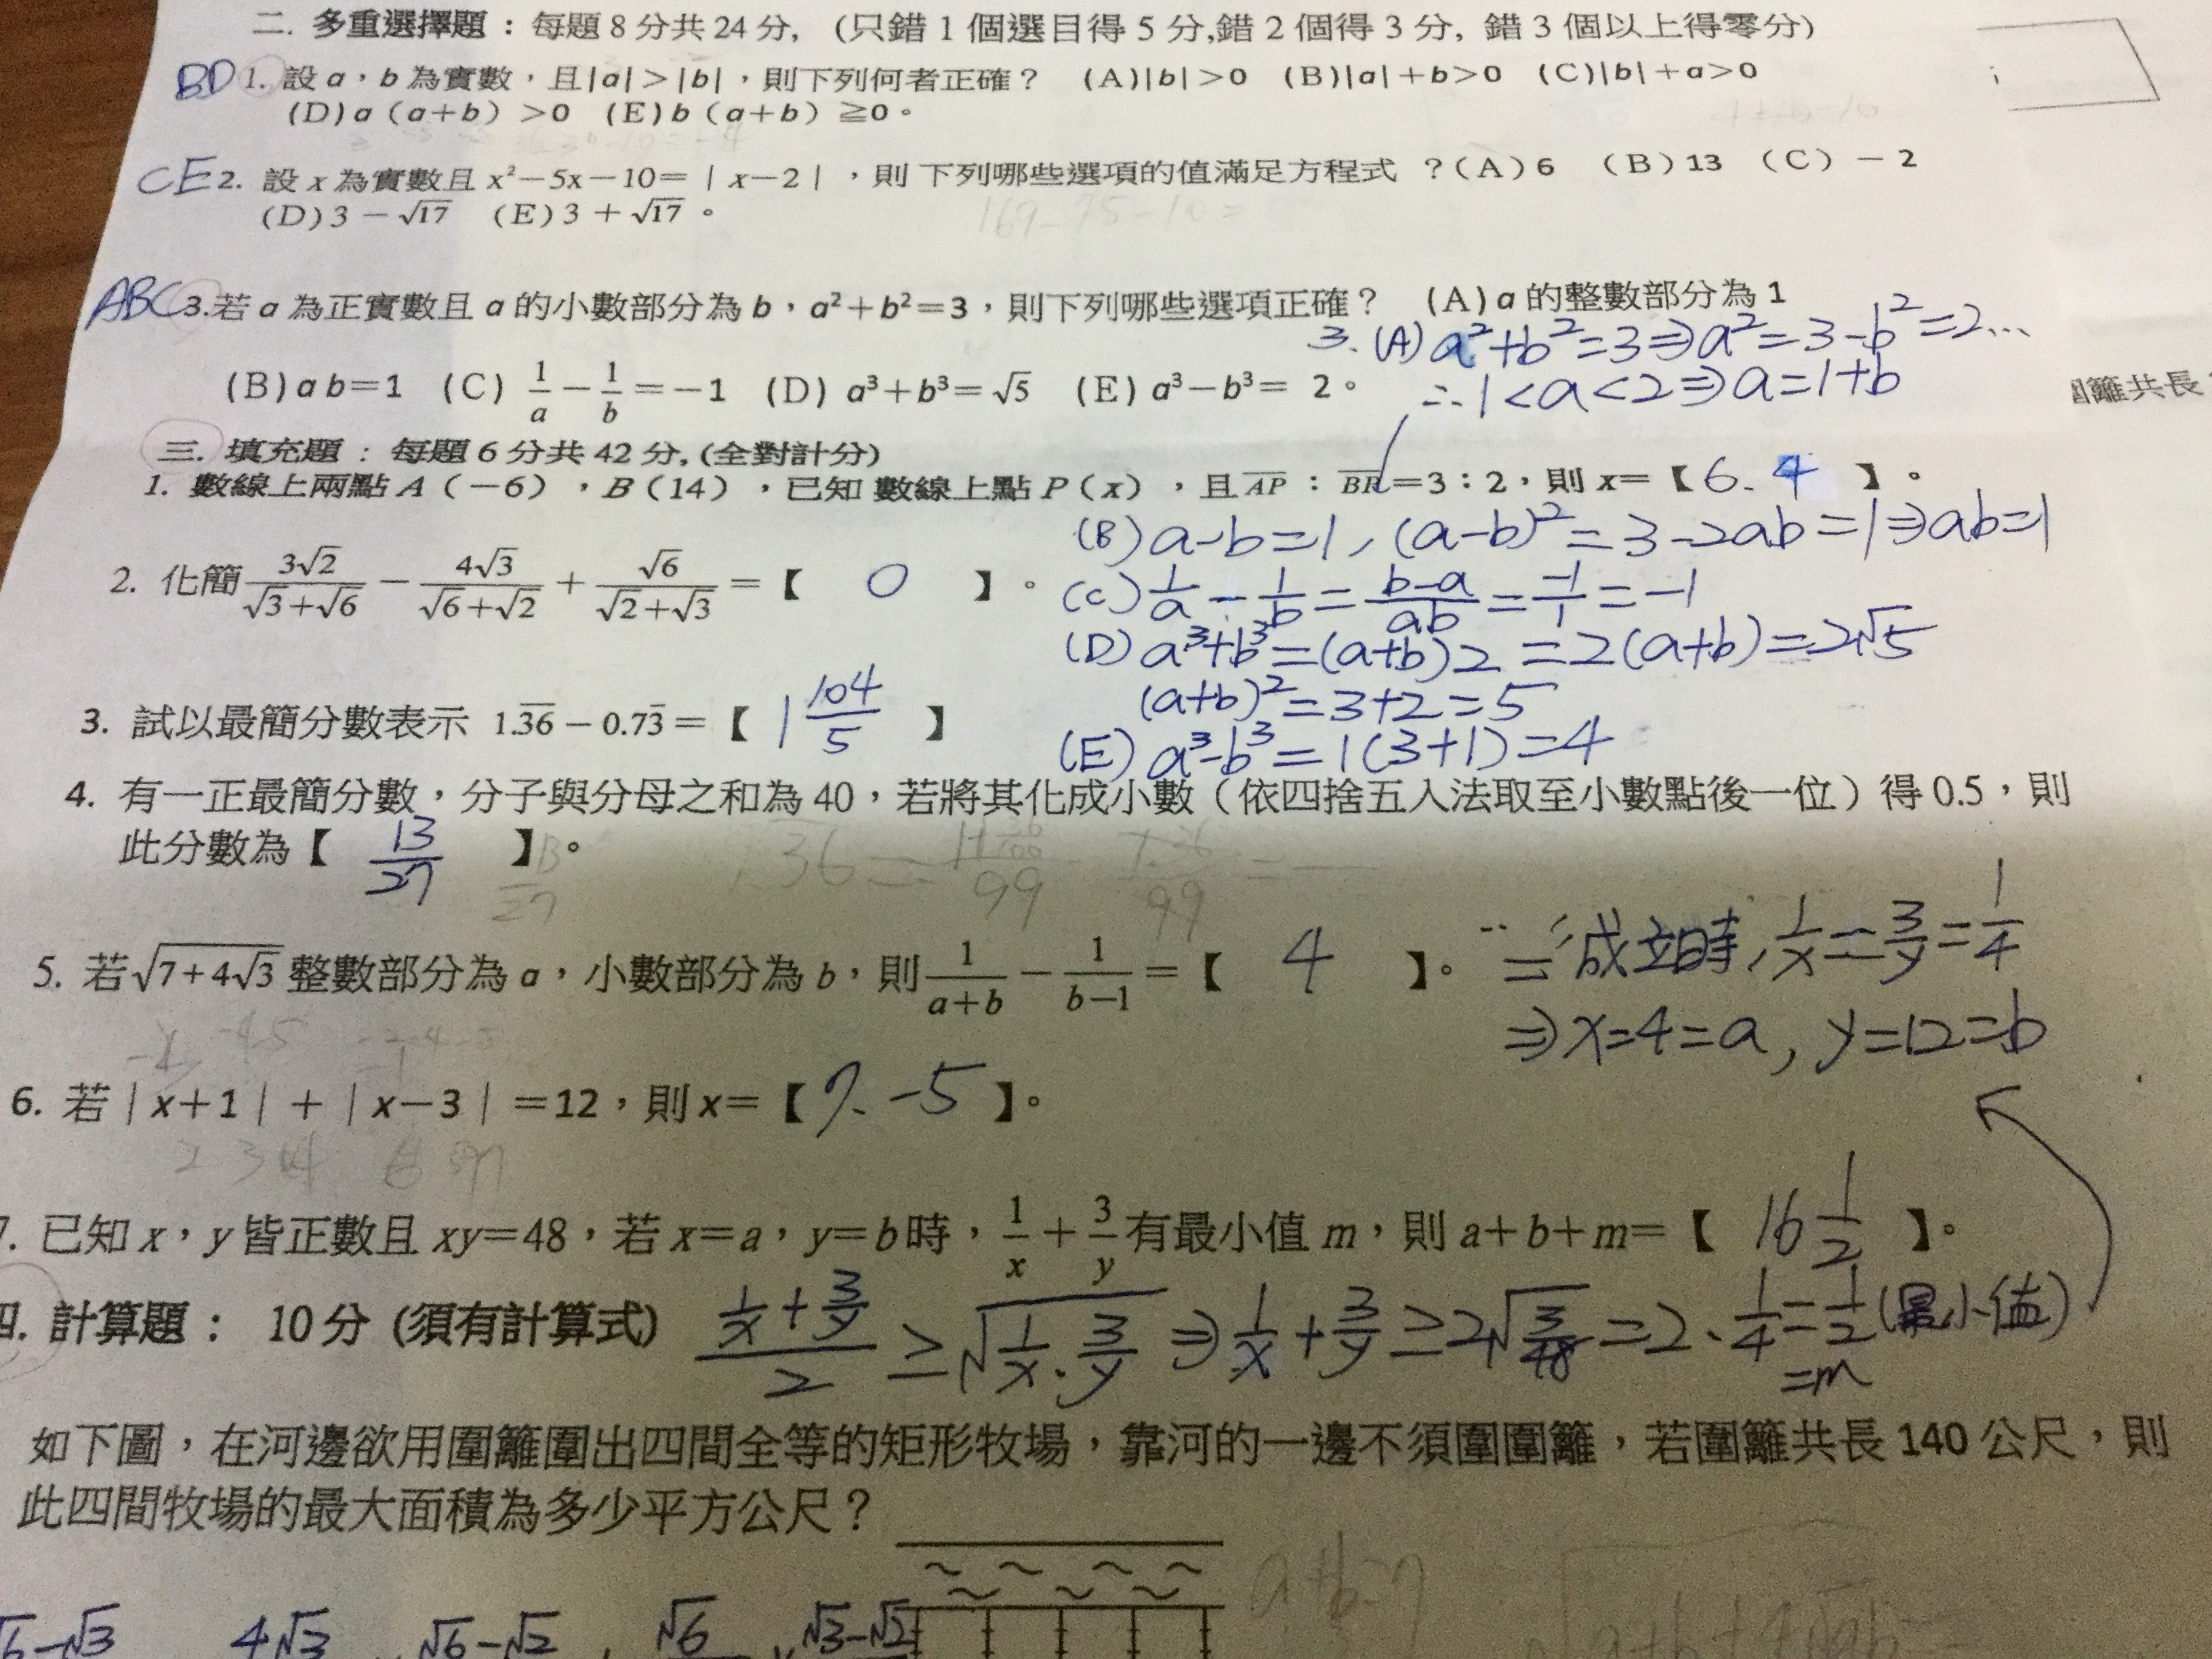 二. 多重選擇題：每題 8 分共 24 分, (只錯 1 個選目得 5 分,錯 2 個得 3 分, 錯 3 個以上得零分)
BD 1. 設 a，b 為實數，且|a|>|b|，則下列何者正確？ (A)|b|>0 (B)|a|+b>0 (C)|b|+a>0
(D)a（a+b）>0 (E)b（a+b）≧0。
CE 2. 設 x 為實數且 x²−5x−10=｜x−2｜，則 下列哪些選項的值滿足方程式 ?(A)6 (B)13 (C)−2
(D)3−√17 (E)3+√17。
ABC 3.若 a 為正實數且 a 的小數部分為 b，a²+b²=3，則下列哪些選項正確？ (A)a 的整數部分為 1
3. (A) a²+b²=3⇒a²=3-b²=2...
(B)a b=1 (C) 1/a − 1/b =−1 (D) a³+b³=√5 (E) a³−b³= 2。
∴1<a<2⇒a=1+b
圍籬共長
三. 填充題：每題 6 分共 42 分,(全對計分)
1. 數線上兩點 A（−6），B（14），已知 數線上點 P（x），且AP：BP=3：2，則 x=【6. 4】。
(B) a-b=1, (a-b)²=3-2ab=1⇒ab=1
2. 化簡 3√2/(√3+√6) − 4√3/(√6+√2) + √6/(√2+√3) =【 0 】。
(C) 1/a - 1/b = (b-a)/ab = -1/1 = -1
(D) a³+b³=(a+b)2=2(a+b)=2√5
(a+b)²=3+2=5
3. 試以最簡分數表示 1.3̅6̅ − 0.73̅ =【 1 104/5 】
(E) a³-b³=1(3+1)=4
4. 有一正最簡分數，分子與分母之和為 40，若將其化成小數（依四捨五入法取至小數點後一位）得 0.5，則
此分數為【 13/27 】。
5. 若√(7+4√3) 整數部分為 a，小數部分為 b，則 1/(a+b) − 1/(b−1) =【 4 】。
"="成立時, 1/x = 3/y = 1/4
⇒x=4=a, y=12=b
6. 若｜x+1｜+｜x−3｜=12，則 x=【 7. -5 】。
7. 已知 x，y 皆正數且 xy=48，若 x=a，y=b 時，1/x + 3/y 有最小值 m，則 a+b+m=【 16 1/2 】。
四. 計算題： 10 分 (須有計算式)
(1/x + 3/y)/2 ≥ √(1/x · 3/y) ⇒ 1/x + 3/y ≥ 2√(3/48) = 2 · 1/4 = 1/2 (最小值)
=m
如下圖，在河邊欲用圍籬圍出四間全等的矩形牧場，靠河的一邊不須圍圍籬，若圍籬共長 140 公尺，則
此四間牧場的最大面積為多少平方公尺？
√6-√3 4√3 √6-√2 √6 √3-√2